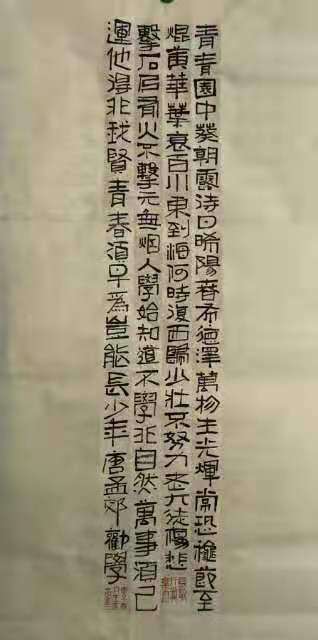 青青園中葵朝露待日晞陽春布德澤萬物生光輝常恐穐節至
焜黄華葉衰百川東到海何時復西歸少壯不努力老大徒傷悲
擊石乃有火不擊元無烟人學始知道不學非自然萬事須已
運他得非我賢青春須早為豈能長少年唐孟郊勸學